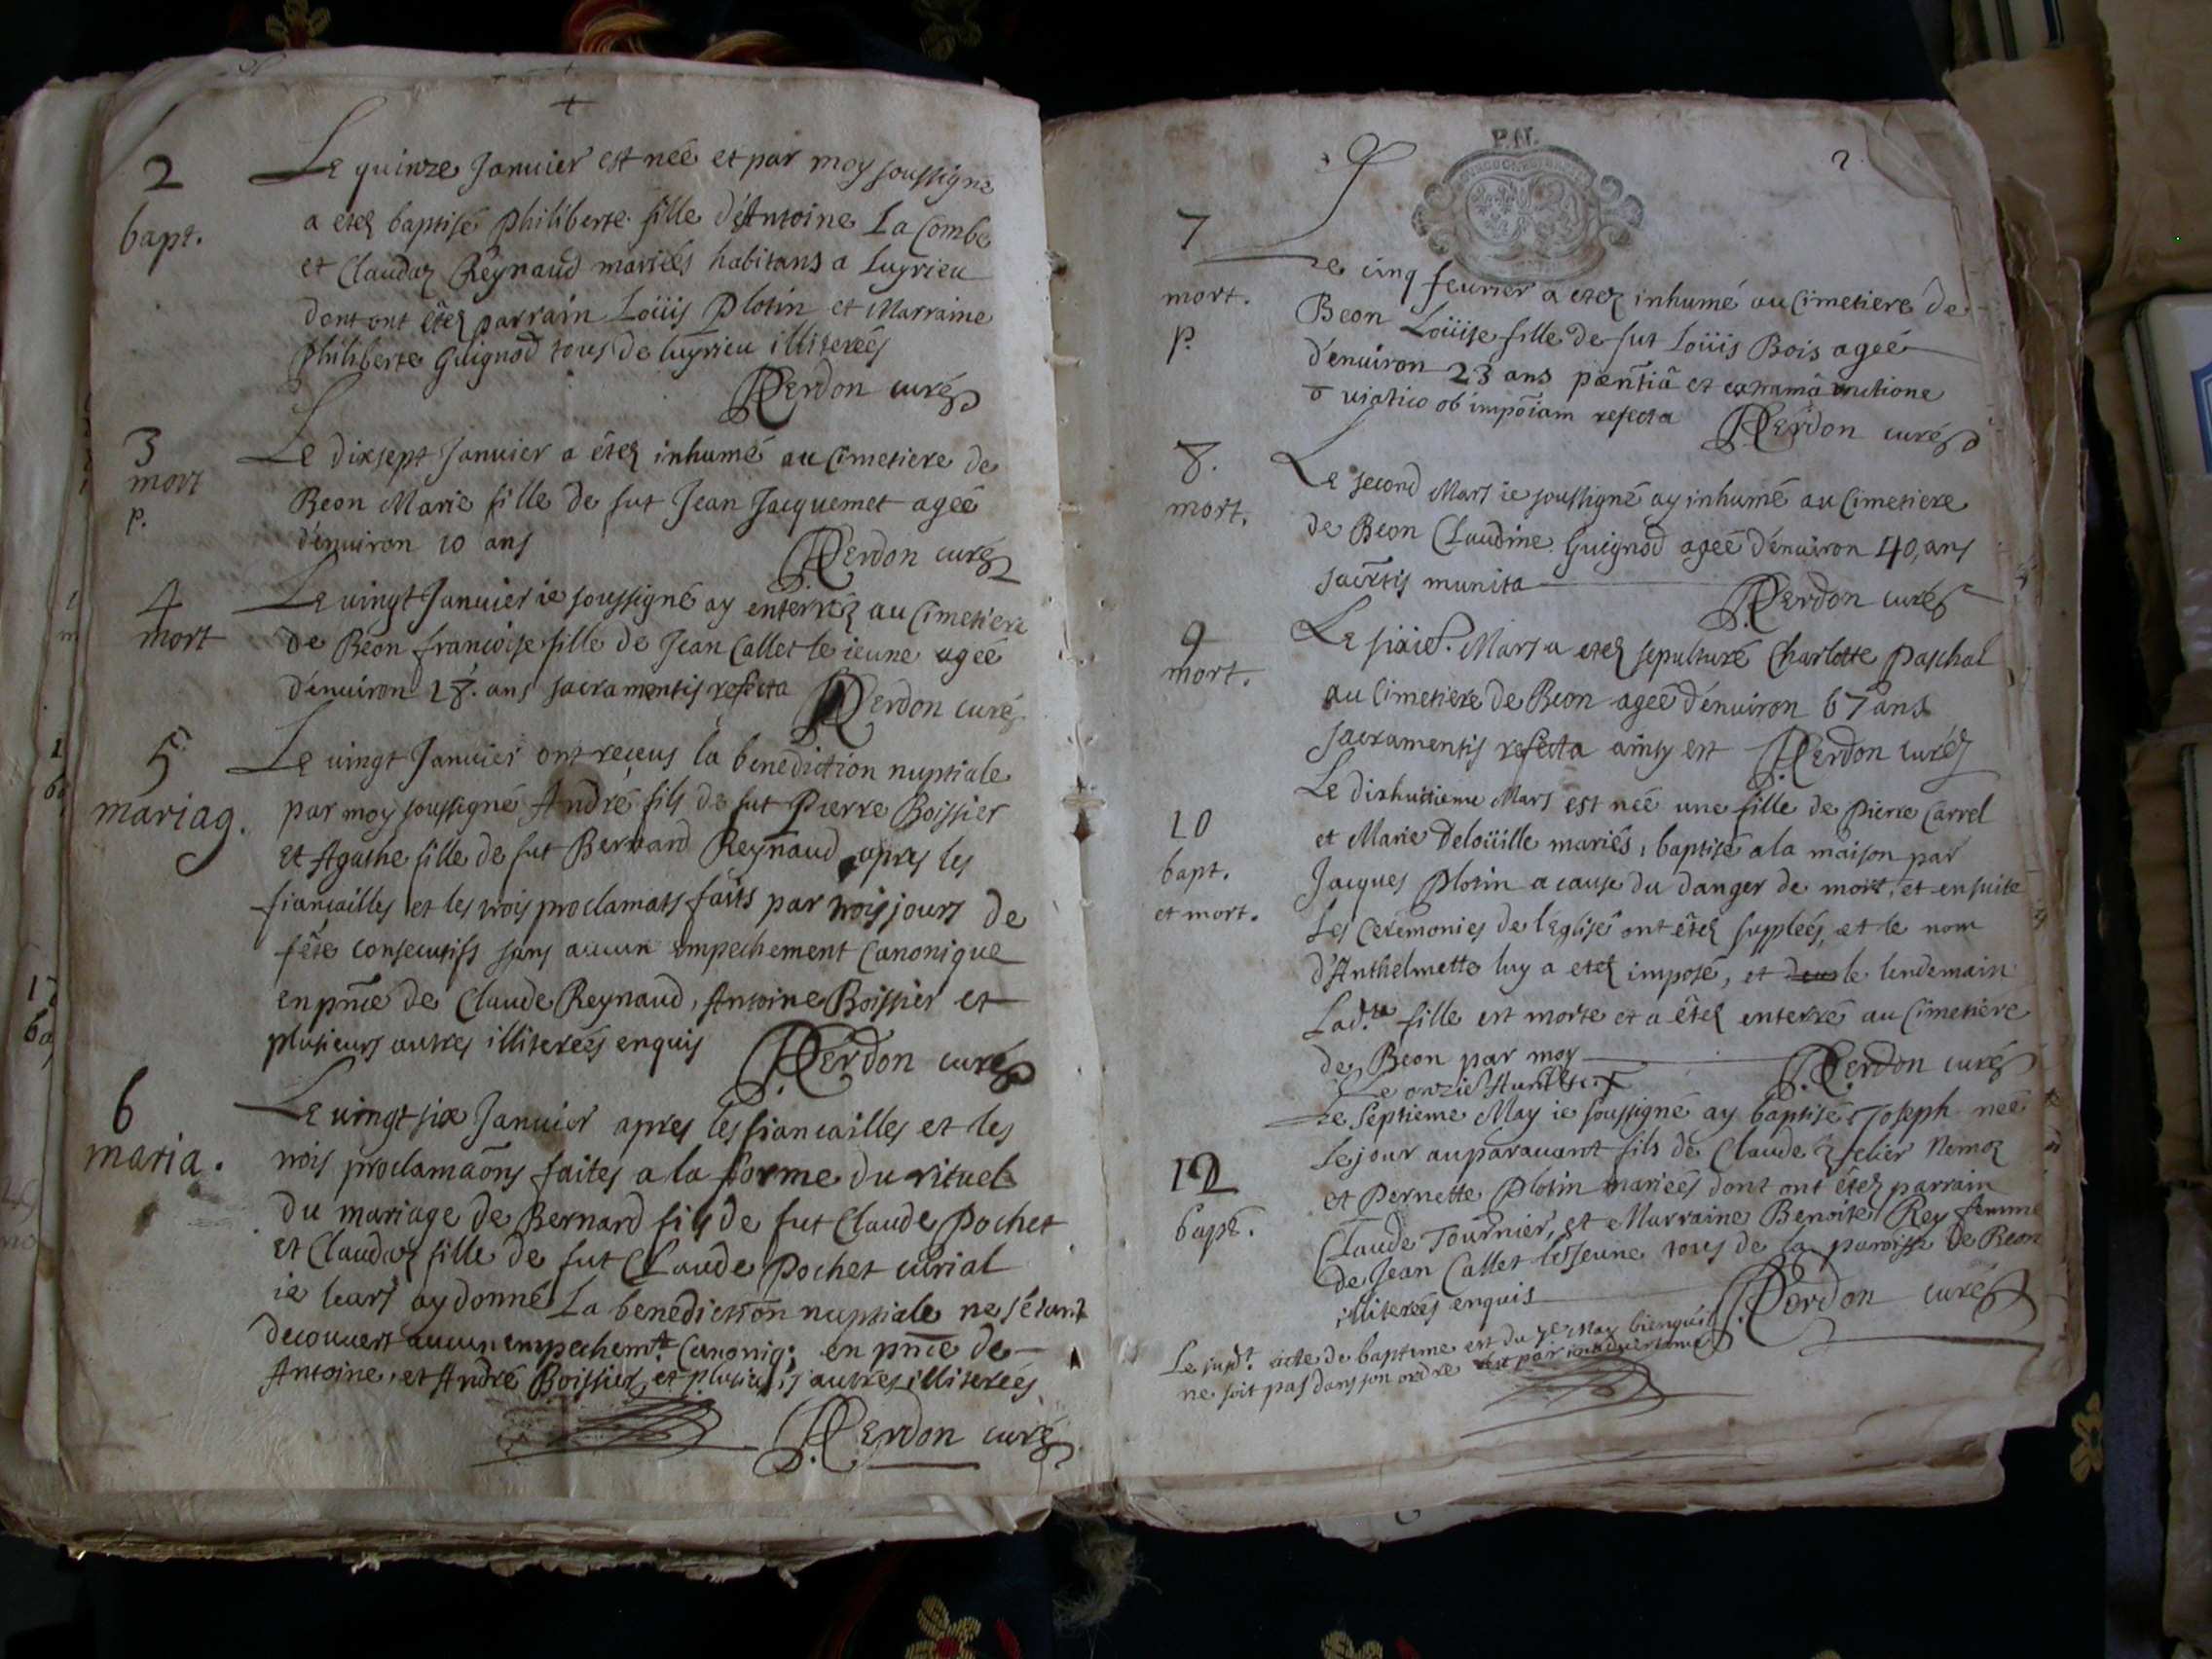 2
bapt.
Le quinze Januier est neé et par moy soussigné
a eteż baptisé Philiberte fille d'Antoine La Combe
et Claudaz Reynaud mariés habitans a Luyrieu
dont ont êteż parrain Loüis Plotin et Marraine
Philiberte Guignod tous de luyrieu illitereés
Perdon curé
3
mort
p.
Le dixsept Januier a êteż inhumé au Cimetiere de
Beon Marie fille de fut Jean Jacquemet ageé
d'enuiron 10 ans
Perdon curé
4
mort
Le uingt Januier ie soussigné ay enterréż au Cimetiere
de Beon francoise fille de Jean Callet le ieune ageé
d'enuiron 18. ans sacramentis refecta Perdon curé
5
mariag.
Le uingt Januier ont receus la benediction nuptiale
par moy soussigné André fils de fut Pierre Boissier
et Agathe fille de fut Bernard Reynaud apres les
fiancailles et les trois proclamats faits par trois jours de
fête consecutifs sans aucun empechement Canonique
en pnce de Claude Reynaud, Antoine Boissier et
plusieurs autres illitereés enquis Perdon curé
6
maria.
Le uingt six Januier apres les fiancailles et les
trois proclamaõns faites a la forme du rituel
du mariage de Bernard fils de fut Claude Pochet
et Claudaz fille de fut Claude Pochet curial
ie leurs ay donné La benediction nuptiale ne s'étant
decouuert aucun empechemt. Canoniq; en pnce de
Antoine, et André Boissier, et plusieurs autres illitereés
Perdon curé
P.N.
2
7
mort.
p.
Le cinq feurier a eteż inhumé au Cimetiere de
Beon Loüise fille de fut Loüis Bois ageé
d'enuiron 23 ans pœntiâ et extramâ unctione
viatico ob impõiam refecta Perdon curé
8.
mort.
Le second Mars ie soussigné ay inhumé au Cimetiere
de Beon Claudine Guignod ageé d'enuiron 40, ans
sacrtis munita Perdon curé
9
mort.
Le sixie. Mars a eteż sepulturé Charlotte Paschal
au Cimetiere de Beon ageé d'enuiron 67 ans
sacramentis refecta ainsy est Perdon curé
10
bapt.
et mort.
Le dixhuitieme Mars est neé une fille de Pierre Carrel
et Marie Deloüille mariés, baptisé a la maison par
Jacques Plotin a cause du danger de mort, et en suite
Les Ceremonies de l'Eglise ont êteż suppleés, et le nom
d'Anthelmette luy a eteż imposé, et le lendemain
Lad.te fille est morte et a êteż enterré au Cimetiere
de Beon par moy Perdon curé
Le onzie
Le septieme May ie soussigné ay baptisé Joseph neé
12
bapt.
le jour auparauant fils de Claude Nemoz
et Pernette Plotin marieés dont ont êteż parrain
Claude Tournier, et Marraine Benoite Rey femme
de Jean Callet le Jeune tous de la paroisse de Beon
illitereés enquis Perdon curé
Le susdt. acte de baptême est du 7e May bienqu'il
ne soit pas dans son ordre par inaduertance